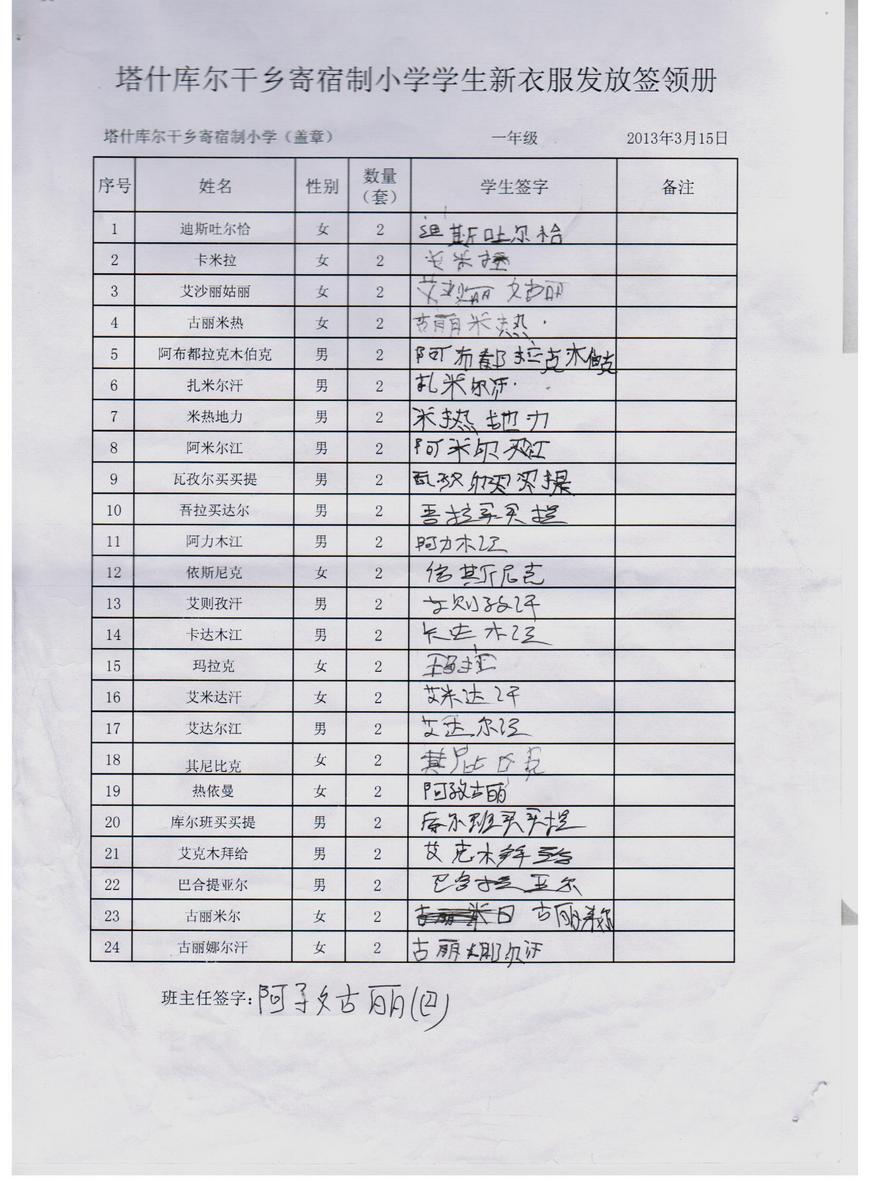 塔什库尔干乡寄宿制小学学生新衣服发放签领册
塔什库尔干乡寄宿制小学（盖章） 一年级 2013年3月15日
序号 姓名 性别 数量（套） 学生签字 备注
1 迪斯吐尔恰 女 2 迪斯吐尔恰
2 卡米拉 女 2 米
3 艾沙丽姑丽 女 2
4 古丽米热 女 2 古丽米热
5 阿布都拉克木伯克 男 2 阿布都拉克木伯克
6 扎米尔汗 男 2 扎米尔汗
7 米热地力 男 2 米热地力
8 阿米尔江 男 2 阿米尔江
9 瓦孜尔买买提 男 2 瓦孜尔买买提
10 吾拉买达尔 男 2 吾拉买买提
11 阿力木江 男 2 阿力木江
12 依斯尼克 女 2 斯尼克
13 艾则孜汗 男 2 艾则孜汗
14 卡达木江 男 2 卡达木江
15 玛拉克 女 2
16 艾米达汗 女 2 艾米达汗
17 艾达尔江 男 2 艾达尔江
18 其尼比克 女 2 其尼比克
19 热依曼 女 2 阿孜古丽
20 库尔班买买提 男 2 库尔班买买提
21 艾克木拜给 男 2 艾克木
22 巴合提亚尔 男 2 巴合提亚尔
23 古丽米尔 女 2 古丽米尔
24 古丽娜尔汗 女 2 古丽娜尔汗
班主任签字：阿孜古丽(巴)